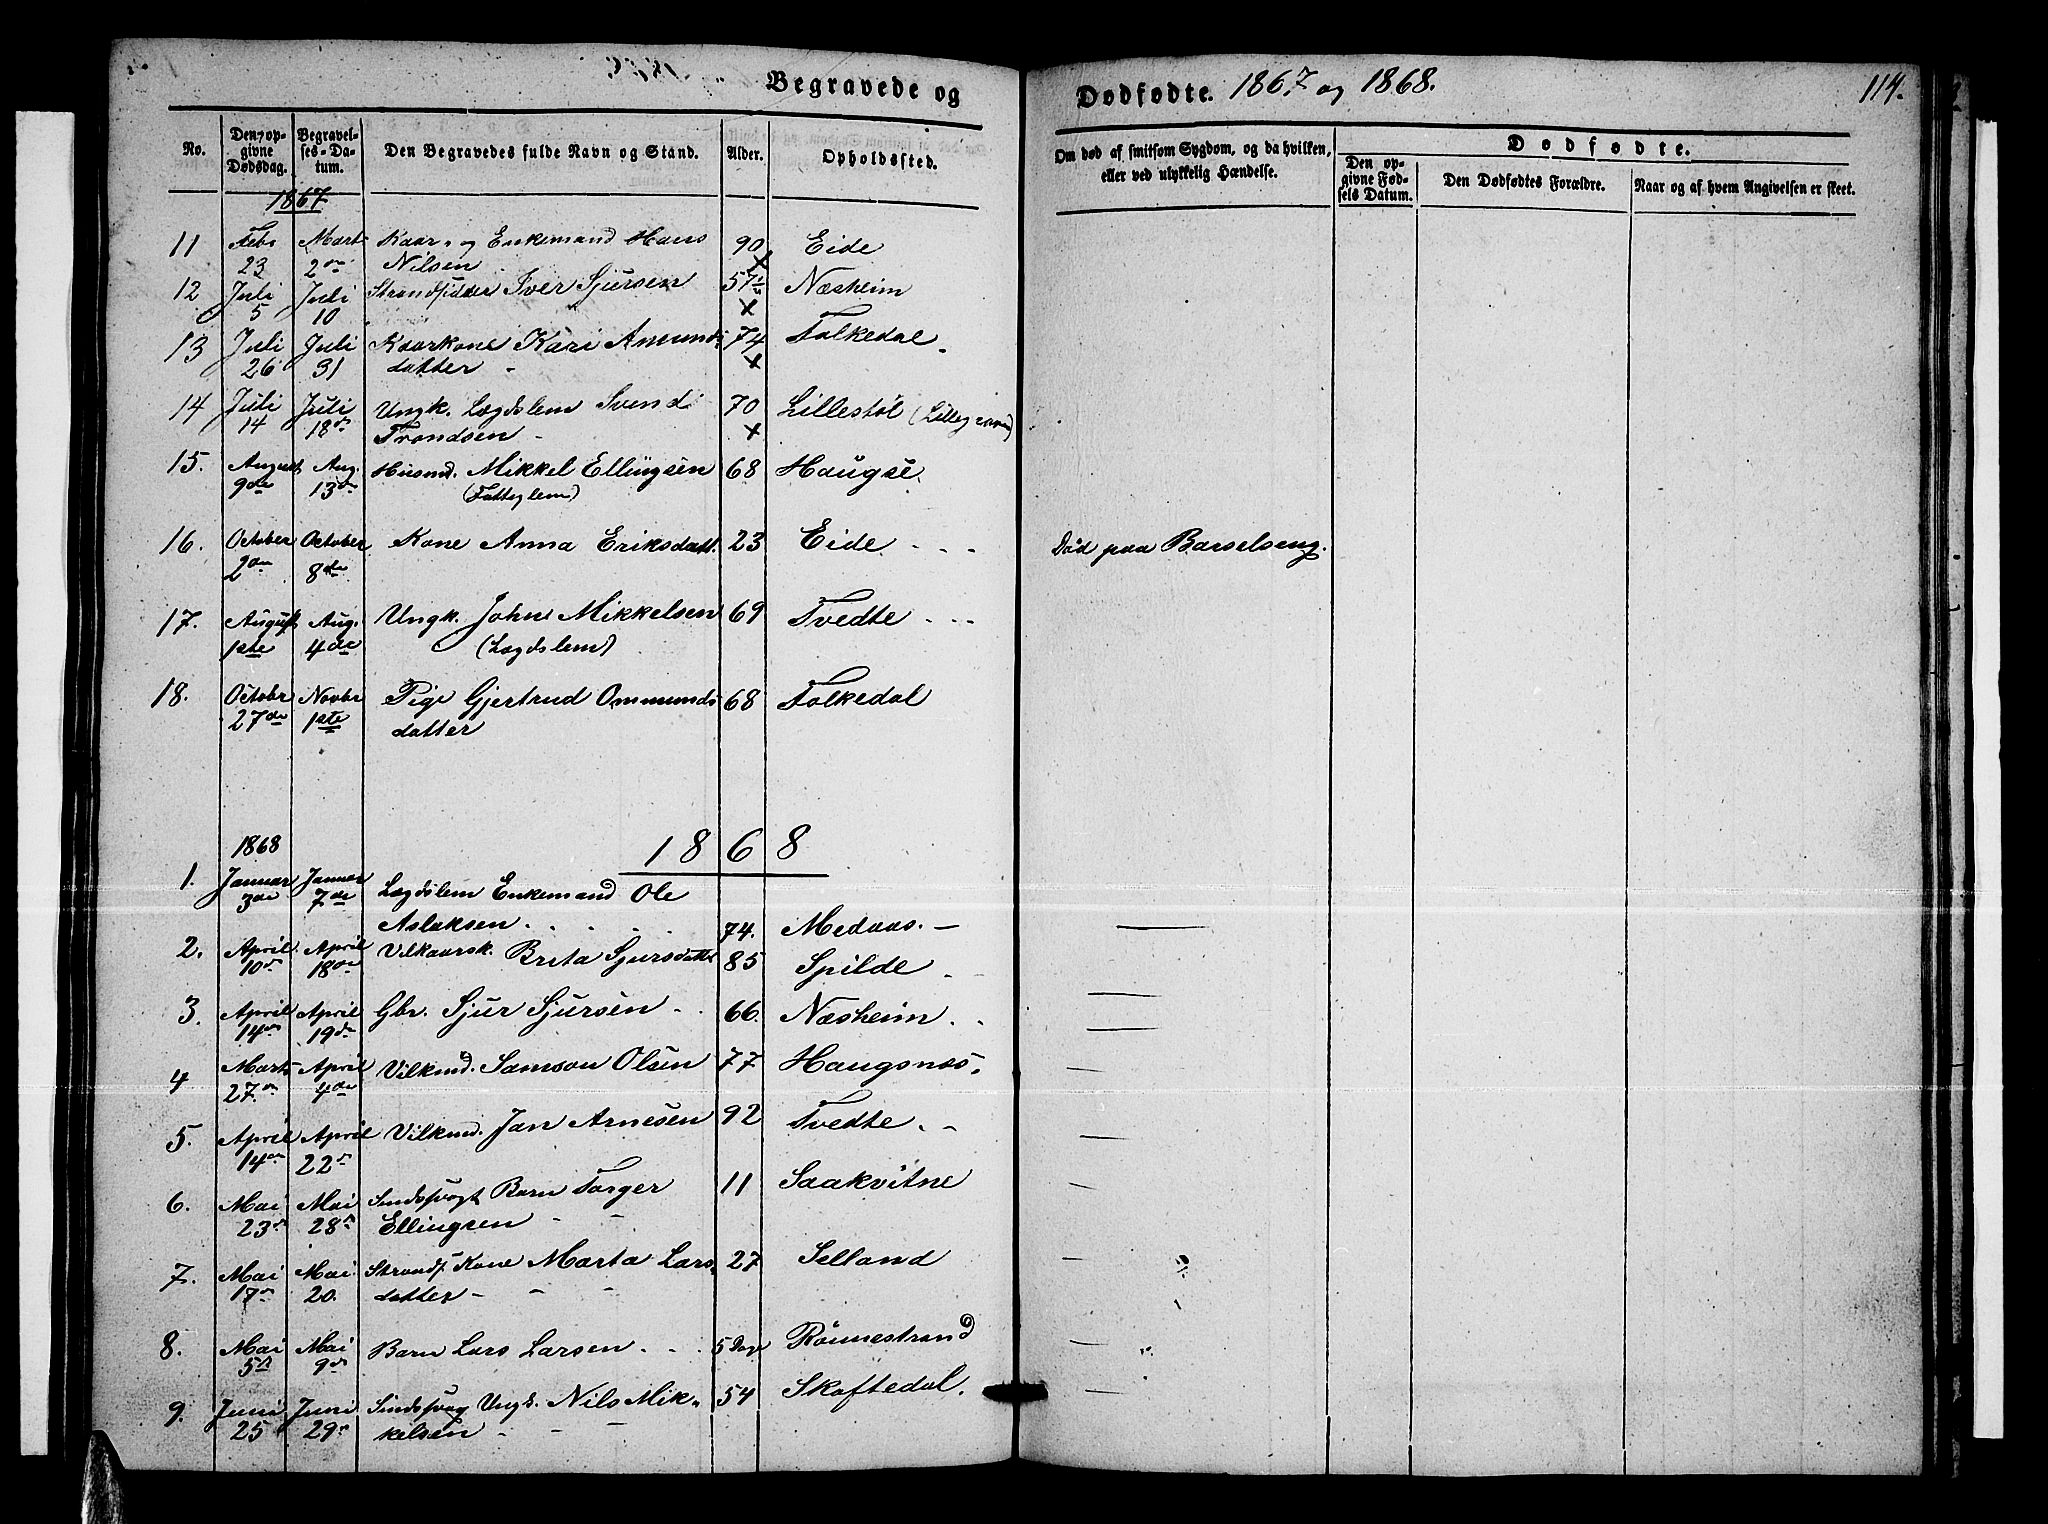 Begravede og
Dødfødte. 1867 og 1868.
114.
No.
Den op-
givne
Dødsdag.
Begravel-
ses-Da-
tum.
Den Begravedes fulde Navn og Stand.
Alder.
Opholdssted.
Om død af smitsom Sygdom, og da hvilken,
eller ved ulykkelig Hændelse.
Dødfødte.
Den op-
givne Fød-
sels Datum.
Den Dødfødtes Forældre.
Naar og af hvem Angivelsen er skeet.
1867
11 Febr Mart Kaar- og Enkemand Hans 90 Eide
23 2den Nilsen x
12 Juli Juli Strandsidder Iver Sjursen 57 Næsheim
5 10 x
13 Juli Juli Kaarkone Kari Amunds 74 Folkedal
26 31 datter x
14 Juli Juli Ungk. Lægdslem Svend 70 Lillestøl
14 18de Trondsen x
15. August Aug. Husmd. Mikkel Ellingsen 68 Haugse.
9de 13de (Fattiglem)
16. October October Kone Anna Eriksdatt. 23 Eide Død paa Barselseng.
2den 8de
17. August Aug. Ungk. John Mikkelsen 69 Tvedte
1ste 4de (Lægdslem)
18. Octobr Novbr Pige Gjertrud Ommunds 68 Folkedal
27de 1ste datter
1868
1868
1. Januar Januar Lægdslem Enkemand Ole
3die 7de Aslaksen. 74. Medaas.
2. April April Vilkaarsk. Brita Sjursdatter 85 Spilde
10de 18de
3. April April Gbr. Sjur Sjursen 66. Næsheim.
14de 19de
4 Marts April Vilkmd. Samson Olsen 77 Haugsnæs.
27de 4de
5. April April Vilkmd. Jan Arnesen 92 Tvedte.
14de 22de
6. Mai Mai Sindssvagt Barn Torger 11 Saakvitne
23de 28de Ellingsen
7. Mai Mai Strands. Kone Marta Lars 27 Selland
17de 20. datter
8. Mai Mai Barn Lars Larsen 5 Dage Rönnestrand
5te 9de
9. Juni Juni Sindssvag Ungk. Nils Mik- 54 Skaftedal.
25 29de kelsen